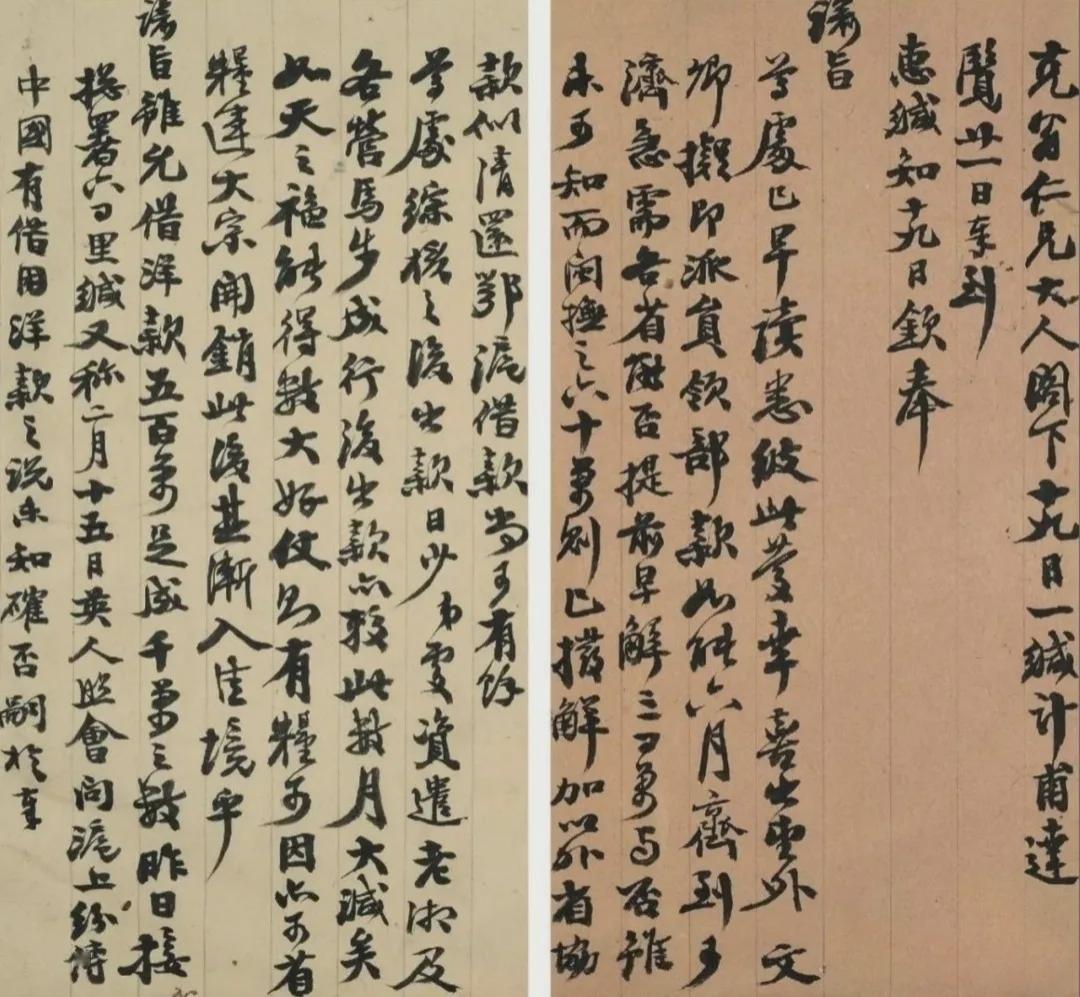 克翁仁兄大人閣下十九日一緘計甫達
覽廿一日車到
惠緘知十九日欽奉
諭旨
尊處已早讀悉彼此慶幸喜出望外文
卿擬即派員領部款如能六月齊到可
濟急需各省能否提前早解三四萬与否雖
未可知而閩撫之六十萬則已撥解加以外省協
款似清還鄂滬借款尚可有餘
尊處綜核之後出款日少弟處資遣老湘及
各營馬步成行後出款亦較此數月大減矣
如天之福能得數大好仗則有糧可因亦可省
糧運大宗開銷此後其漸入佳境乎
諭旨雖允借洋款五百萬足成千萬之數昨日接
總署六百里緘又称二月十五日英人照會向滬上紛傳
中國有借用洋款之說未知確否嗣於